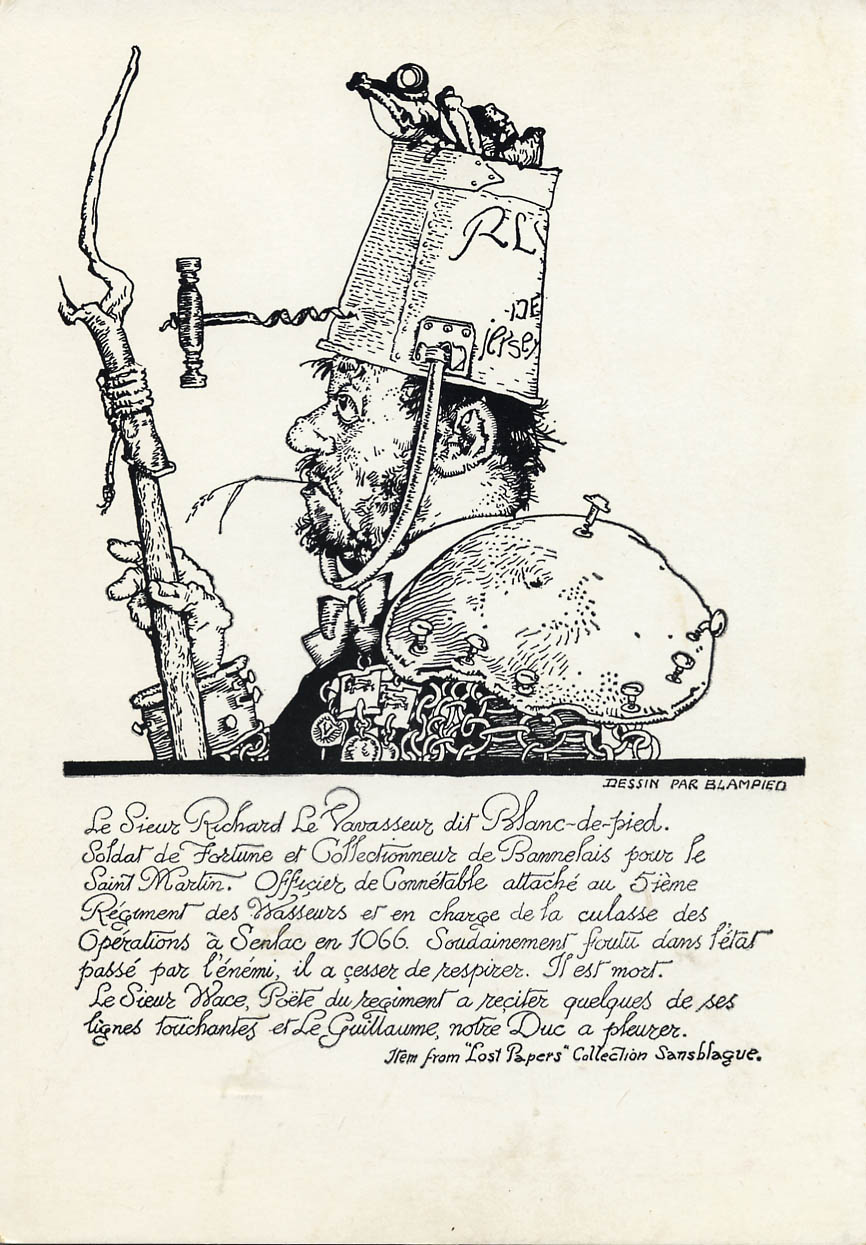 RLV
DE
Jersey
DESSIN PAR BLAMPIED
Le Sieur Richard Le Vavasseur dit Blanc-de-pied.
Soldat de Fortune et Collectionneur de Bannelais pour le
Saint Martin. Offiçier de Connétable attaché au 5ième
Régiment des Vasseurs et en charge de la culasse des
Opérations à Senlac en 1066. Soudainement foutu dans l'état
passé par l'énémi, il a çesser de respirer. Il est mort.
Le Sieur Wace, Poëte du regiment a reçiter quelques de ses
lignes touchantes et Le Guillaume, notre Duc a pleurer.
Item from "Lost Papers" Collection Sansblague.